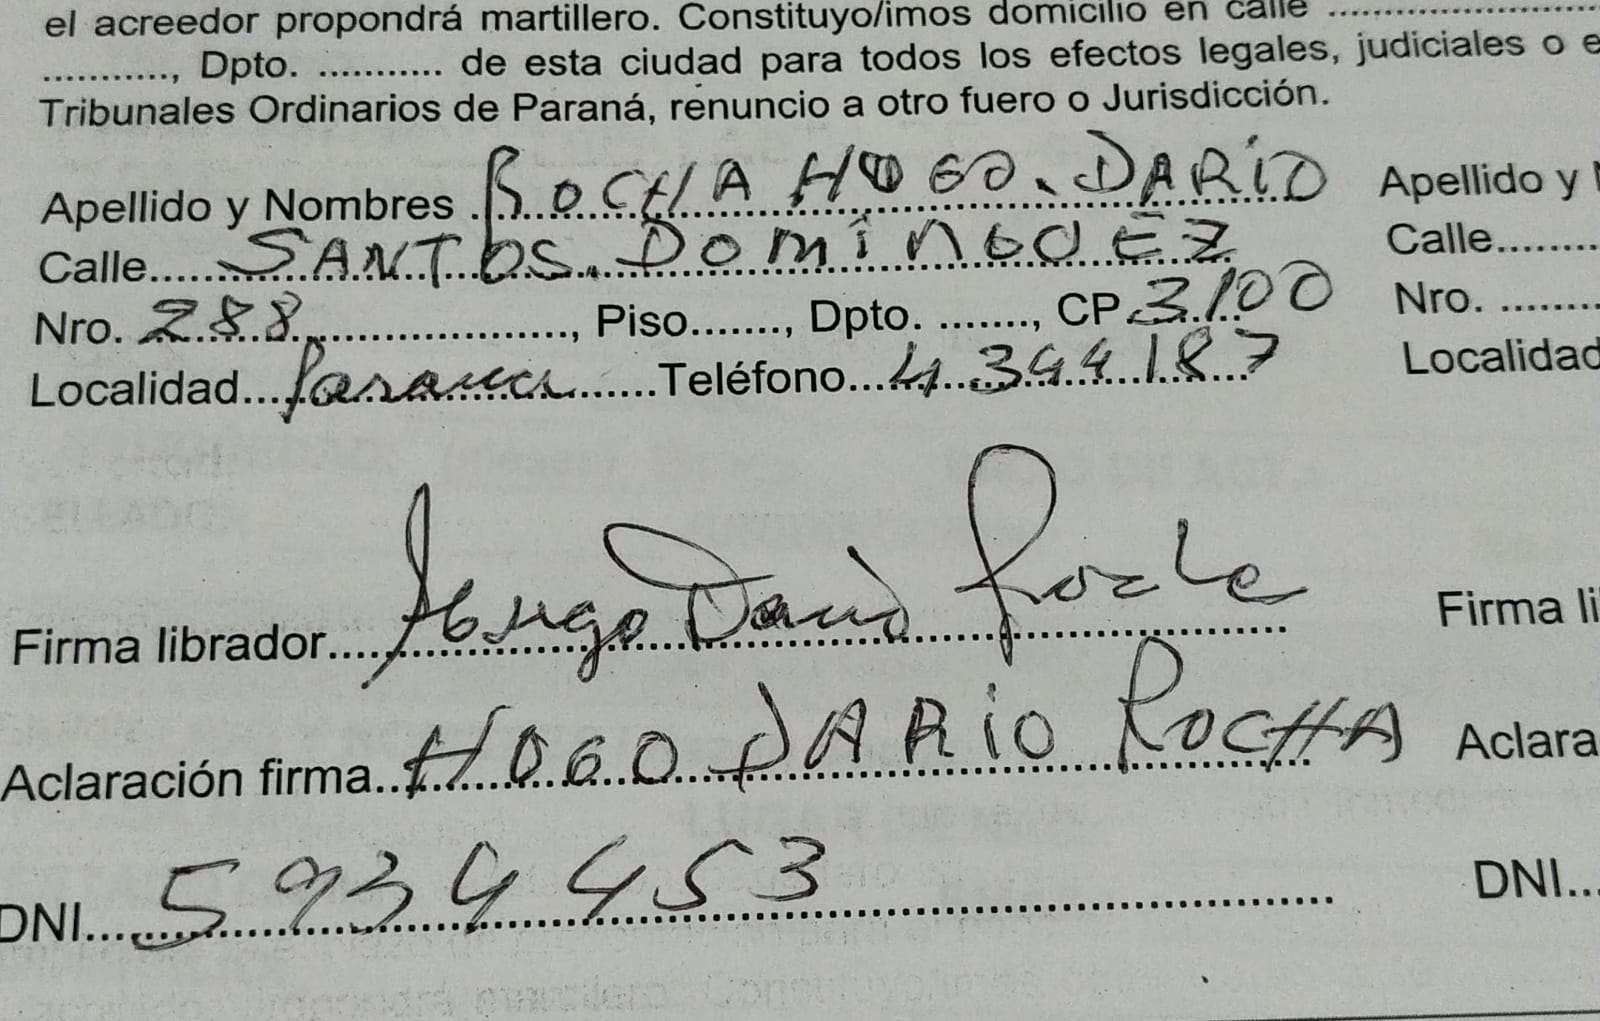 el acreedor propondrá martillero. Constituyo/imos domicilio en calle ..............................
............, Dpto. ........... de esta ciudad para todos los efectos legales, judiciales o e
Tribunales Ordinarios de Paraná, renuncio a otro fuero o Jurisdicción.
Apellido y Nombres ROCHA HUGO. DARÍO Apellido y N
Calle SANTOS. DOMINGUEZ Calle.........
Nro. 288, Piso......., Dpto. ......., CP 3100 Nro. ........
Localidad Parana Teléfono 4 344187 Localidad
Firma librador Hugo Dario Rocha Firma li
Aclaración firma HUGO DARIO ROCHA Aclara
DNI 5934453 DNI...